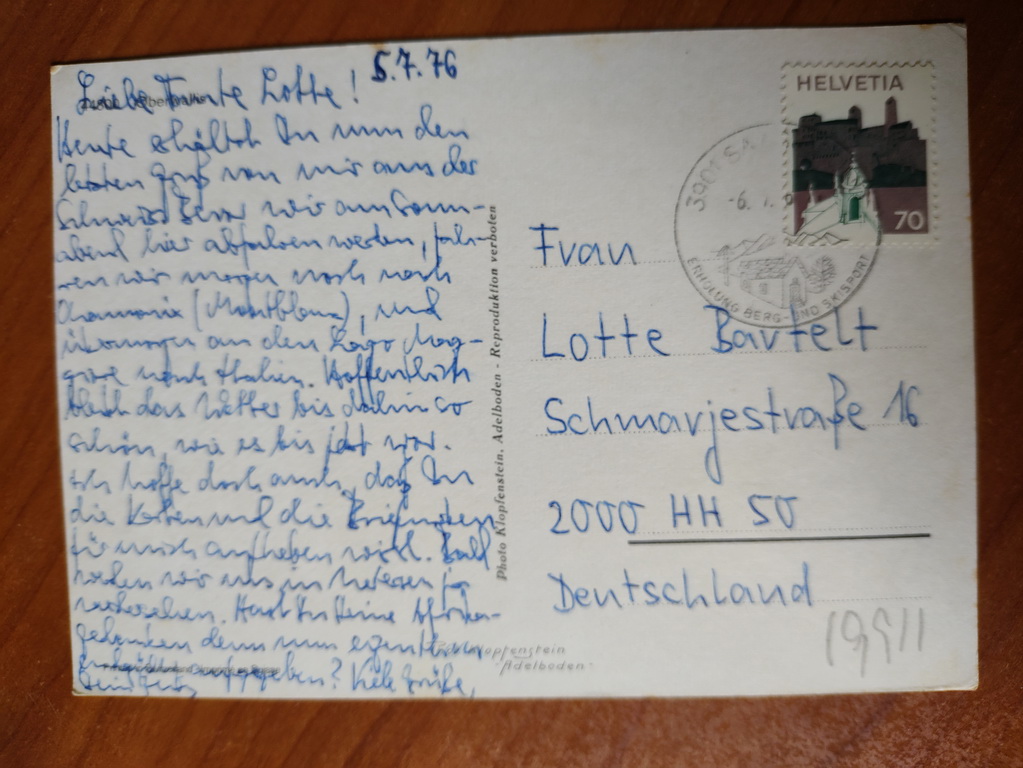 5.7.76
Liebe Tante Lotte!
Heute erhältst Du nun den
letzten Gruß von mir aus der
Schweiz. Bevor wir am Sonn-
abend hier abfahren werden, fah-
ren wir morgen noch nach
Chamonix (Montblanc), und
übermorgen an den Lago Mag-
giore nach Italien. Hoffentlich
bleibt das Wetter bis dahin so
schön, wie es bis jetzt war.
Ich hoffe doch auch, daß Du
die Karten und die Briefmarken
für mich aufheben wirst. Bald
wollen wir uns in
Hast Du Deine
denn nun
aufgegeben? Viele Grüße,
Photo Klopfenstein, Adelboden - Reproduktion verboten
Klopfenstein
Adelboden
HELVETIA
70
3901 SA
-6.
ERHOLUNG BERG- UND SKISPORT
Frau
Lotte Bartelt
Schmarjestraße 16
2000 HH 50
Deutschland